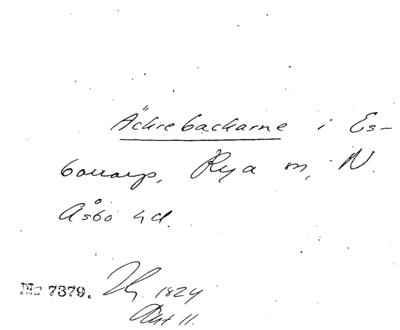 Äckrebackarne i Es-
borrarp, Rya sn, N.
Åsbo hd.
No 7379. 1824
Akt 11.